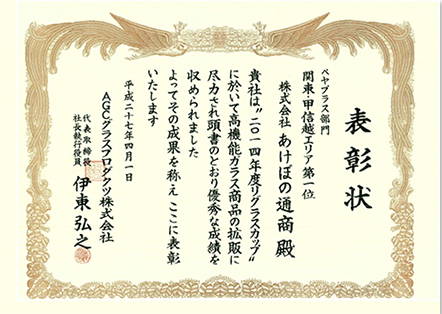 表彰状
ペヤプラス部門
関東・甲信越エリア第一位
株式会社 あけぼの通商 殿
貴社は〝二〇一四年度リグラスカップ〟
に於いて高機能ガラス商品の拡販に
尽力され頭書のとおり優秀な成績を
収められました
よってその成果を称え ここに表彰
いたします
平成二十七年四月一日
AGCグラスプロダクツ株式会社
代表取締役
社長執行役員 伊東弘之